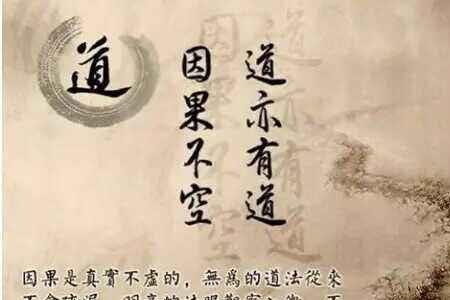 道
道亦有道
因果不空
因果是真實不虛的，無爲的道法從來